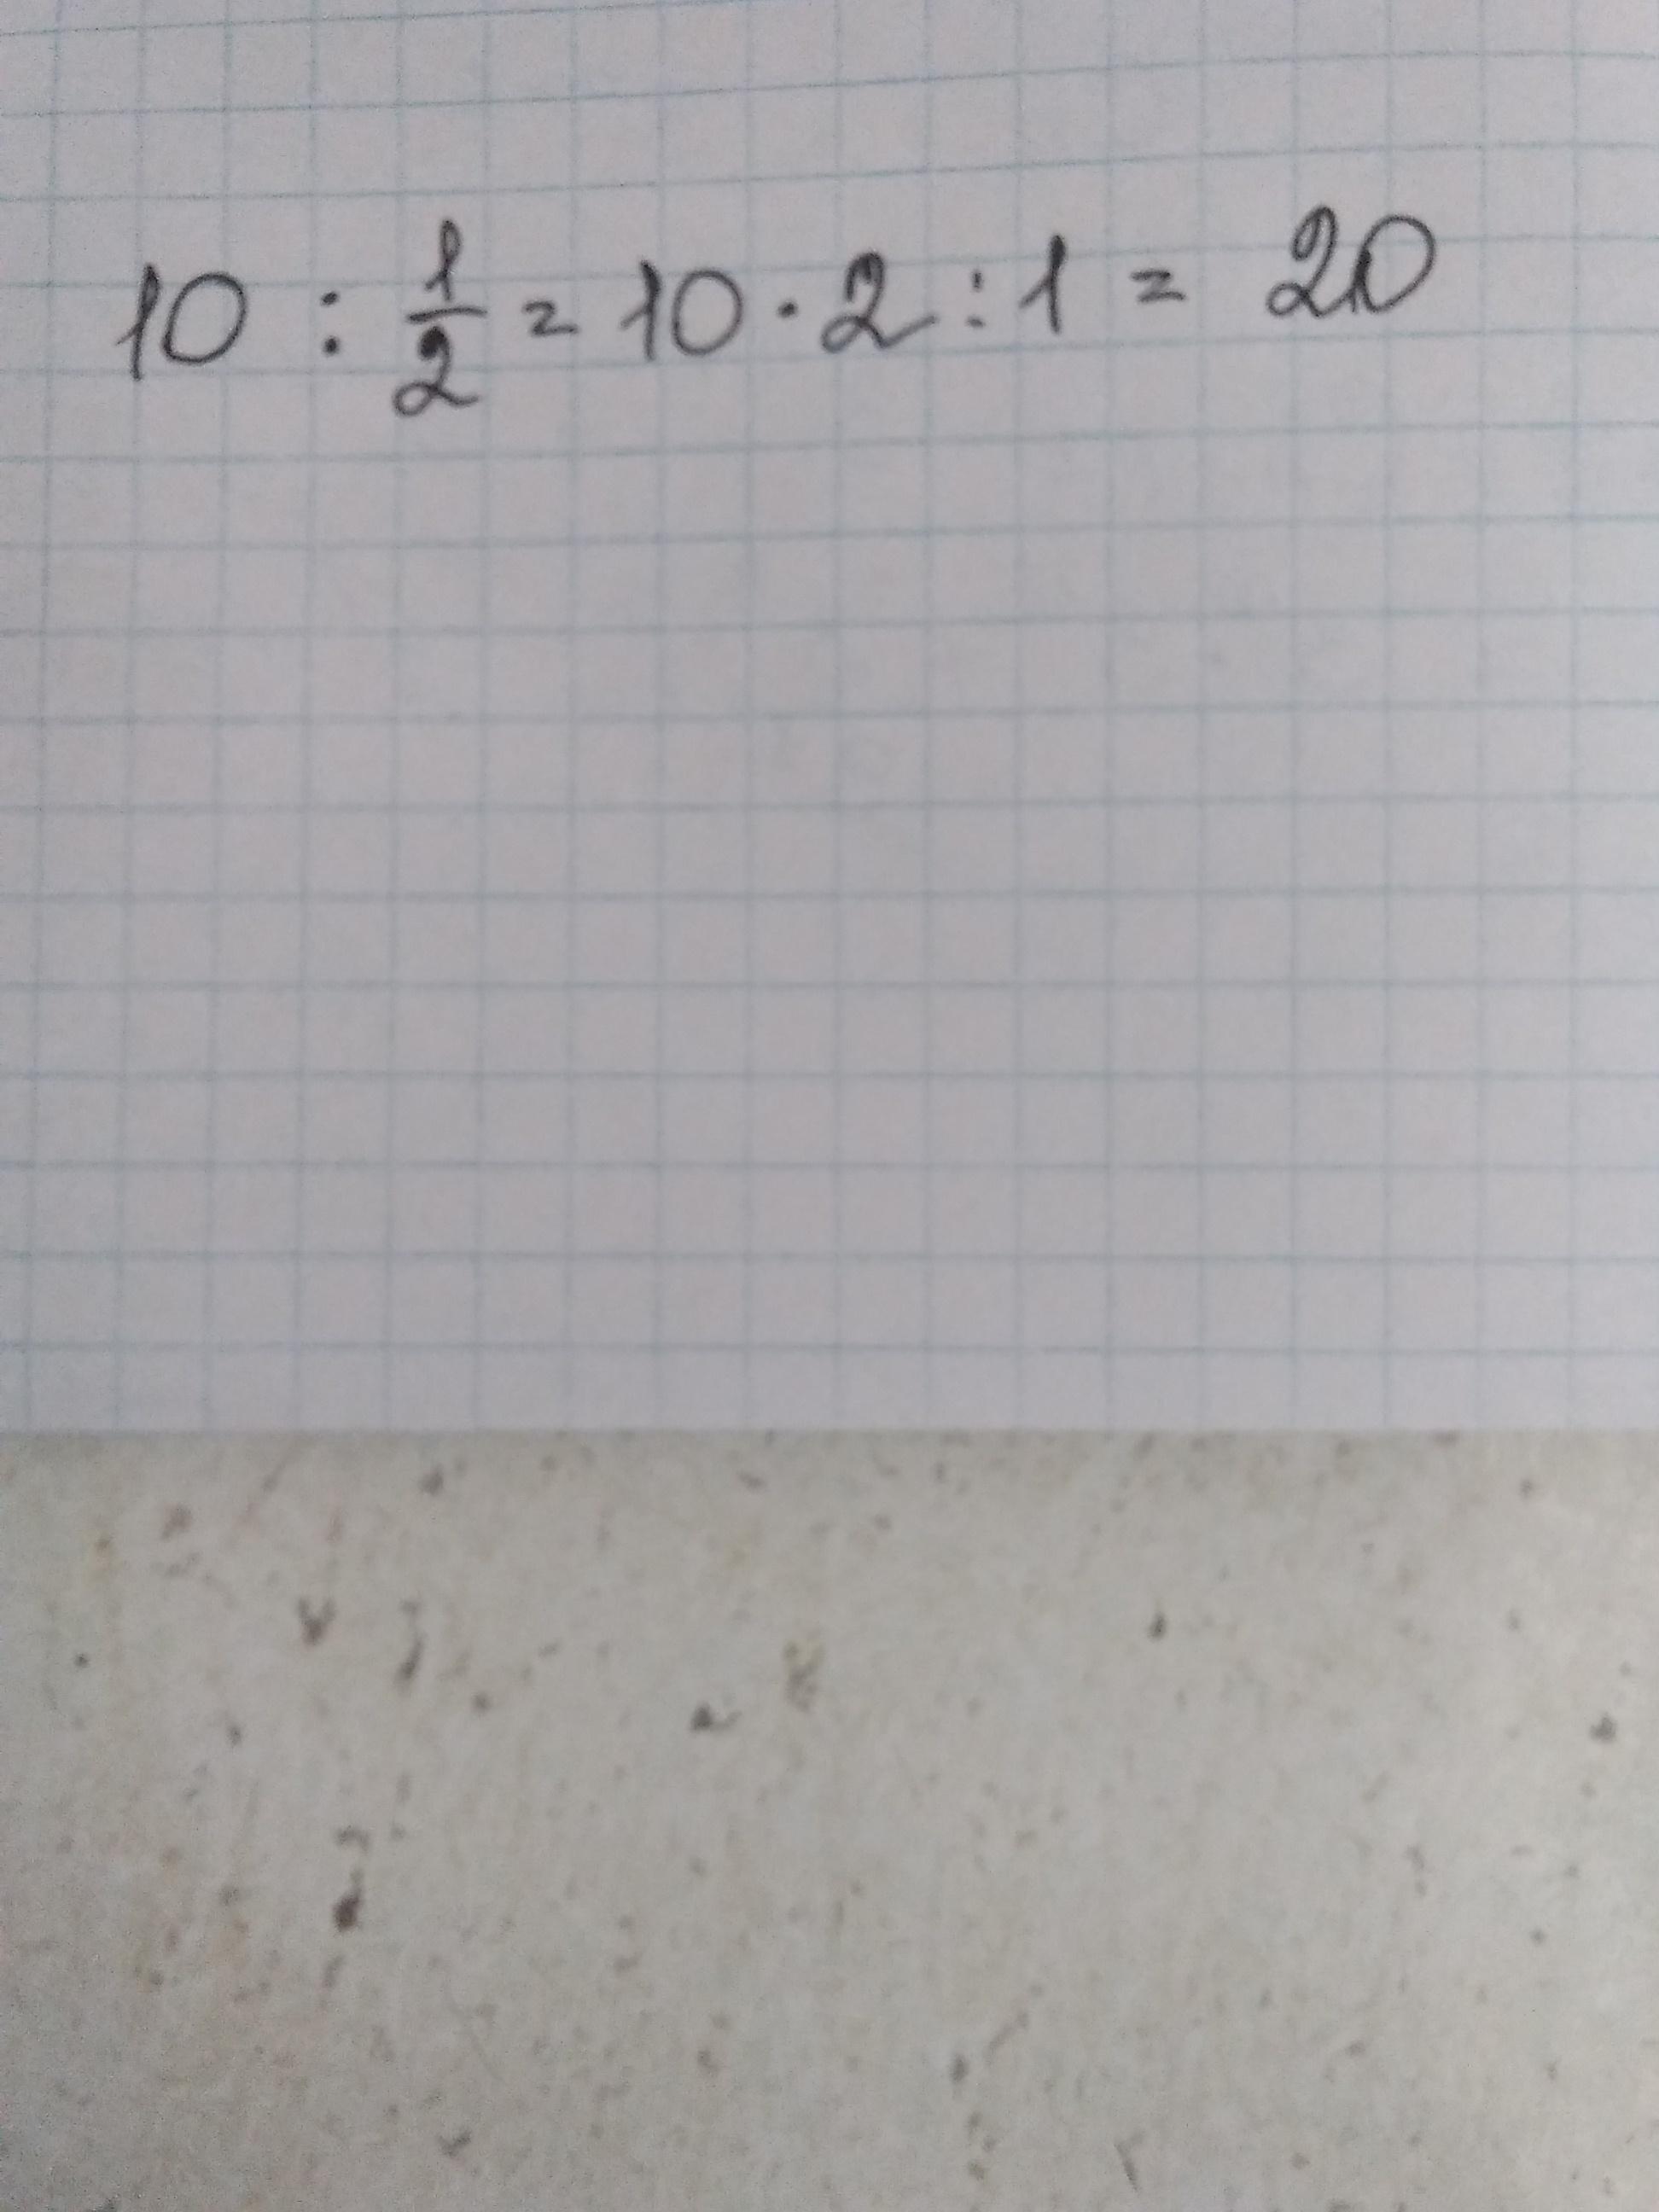 10 : 1/2 = 10 · 2 : 1 = 20